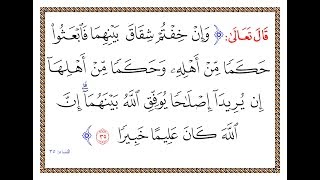 قَالَ تَعَالَىٰ: ﴿ وَإِنْ خِفْتُمْ شِقَاقَ بَيْنِهِمَا فَٱبْعَثُوا۟
حَكَمًا مِّنْ أَهْلِهِۦ وَحَكَمًا مِّنْ أَهْلِهَآ
إِن يُرِيدَآ إِصْلَٰحًا يُوَفِّقِ ٱللَّهُ بَيْنَهُمَآ ۗ إِنَّ
ٱللَّهَ كَانَ عَلِيمًا خَبِيرًا ٣٥ ﴾
النساء: ٣٥